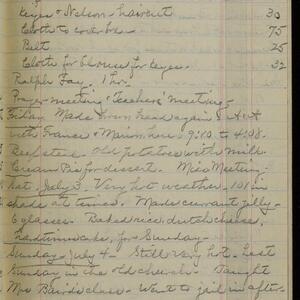 Keyes & Nelson - haircut 30
Cloth to cover 75
Belt 25
Cloth for blouse for Keyes. 32
Ralph Fay, 1 hr.
Prayer meeting & Teachers' meeting
Friday Made brown bread again
with Frances & Marion here - 9:10 to 4:08.
Beefsteak Old potatoes with milk.
Cream Pie for dessert. Miss Meeting
Sat. July 3. Very hot weather - 101 in
shade at times. Made currant jelly -
6 glasses. Baked rice, dutch cheese,
cake, for Sunday -
Sunday July 4 - Still very hot. Last
Sunday in the old church. Taught
Mrs Bairds class - Went to jail in after-